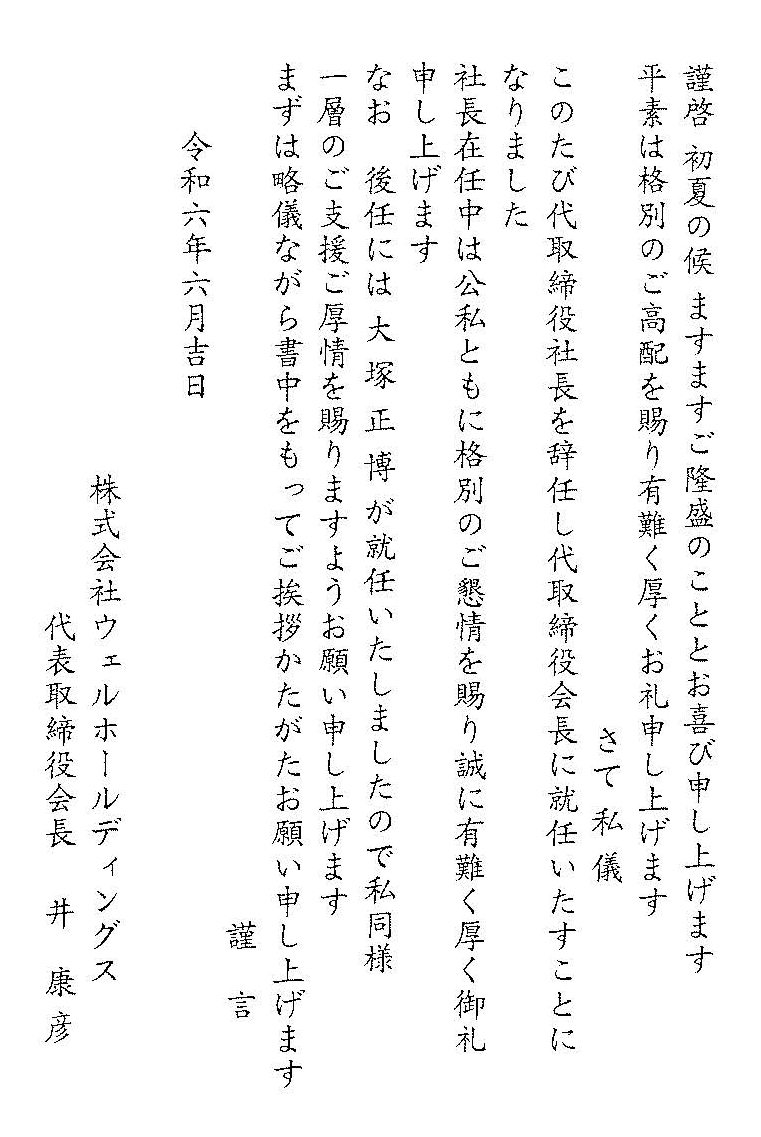 謹啓 初夏の候 ますますご隆盛のこととお喜び申し上げます
平素は格別のご高配を賜り有難く厚くお礼申し上げます
さて 私 儀
このたび代取締役社長を辞任し代取締役会長に就任いたすことに
なりました
社長在任中は公私ともに格別のご懇情を賜り誠に有難く厚く御礼
申し上げます
なお 後任には 大 塚 正 博 が就任いたしましたので私同様
一層のご支援ご厚情を賜りますようお願い申し上げます
まずは略儀ながら書中をもってご挨拶かたがたお願い申し上げます
謹 言
令和六年六月吉日
株式会社ウェルホールディングス
代表取締役会長 井 康 彦